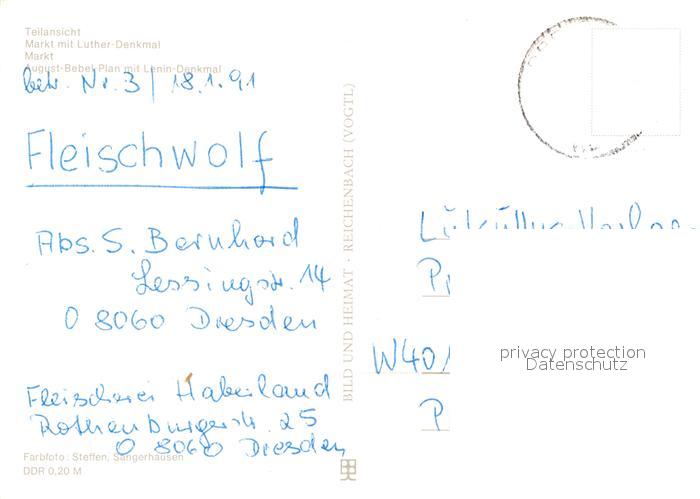 Teilansicht
Markt mit Luther-Denkmal
Markt
August-Bebel-Plan mit Lenin-Denkmal
betr. Nr. 3 / 18.1.91
Fleischwolf
Abs. S. Bernhard
Lessingstr. 14
O 8060 Dresden
Fleischerei Haberland
Rothenburgerstr. 25
O 8060 Dresden
Farbfoto: Steffen, Sangerhausen
DDR 0,20 M
BILD UND HEIMAT · REICHENBACH (VOGTL)
W40
P
privacy protection
Datenschutz